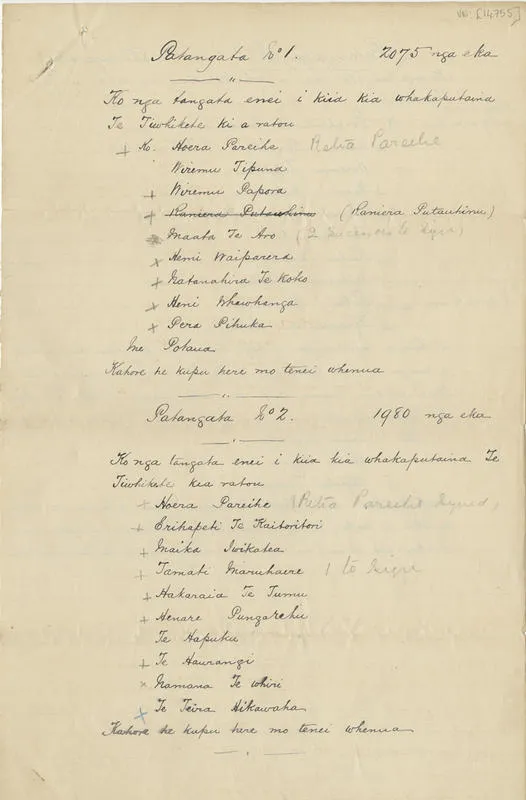 VB: [14755]
Patangata No 1. 2075 nga eka
Ko nga tangata enei i kiia kia whakaputaina
Te Tiwhikete ki a ratou
+ Ko. Hoera Pareihe Retia Pareihe
Wiremu Tipuna
+ Wiremu Papora
+ Raniera Putauhinu (Raniera Putauhinu)
Maata Te Aro (2 successors to sign)
+ Hemi Waiparera
+ Natanahira Te Koko
+ Heni Whawhanga
+ Pera Pihuka
me Potaua
Kahore he kupu here mo tenei whenua
Patangata No 2. 1980 nga eka
Ko nga tangata enei i kiia kia whakaputaina Te
Tiwhikete kia ratou
+ Hoera Pareihe (Retia Pareihe signed)
+ Erihapeti Te Kaitoritori
+ Maika Iwikatea
+ Tamati Maruhaere 1 to sign
+ Hakaraia Te Tumu
+ Henare Pungarehu
Te Hapuku
+ Te Haurangi
x Namana Te Whiri
+ Te Teira Hikawaha
Kahore he kupu here mo tenei whenua